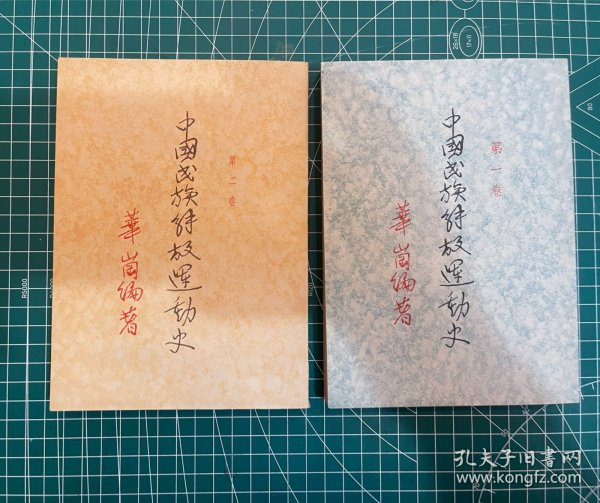 第二卷
中國民族解放運動史
華崗編著
第一卷
中國民族解放運動史
華崗編著
孔夫子旧书网
www.kongfz.com